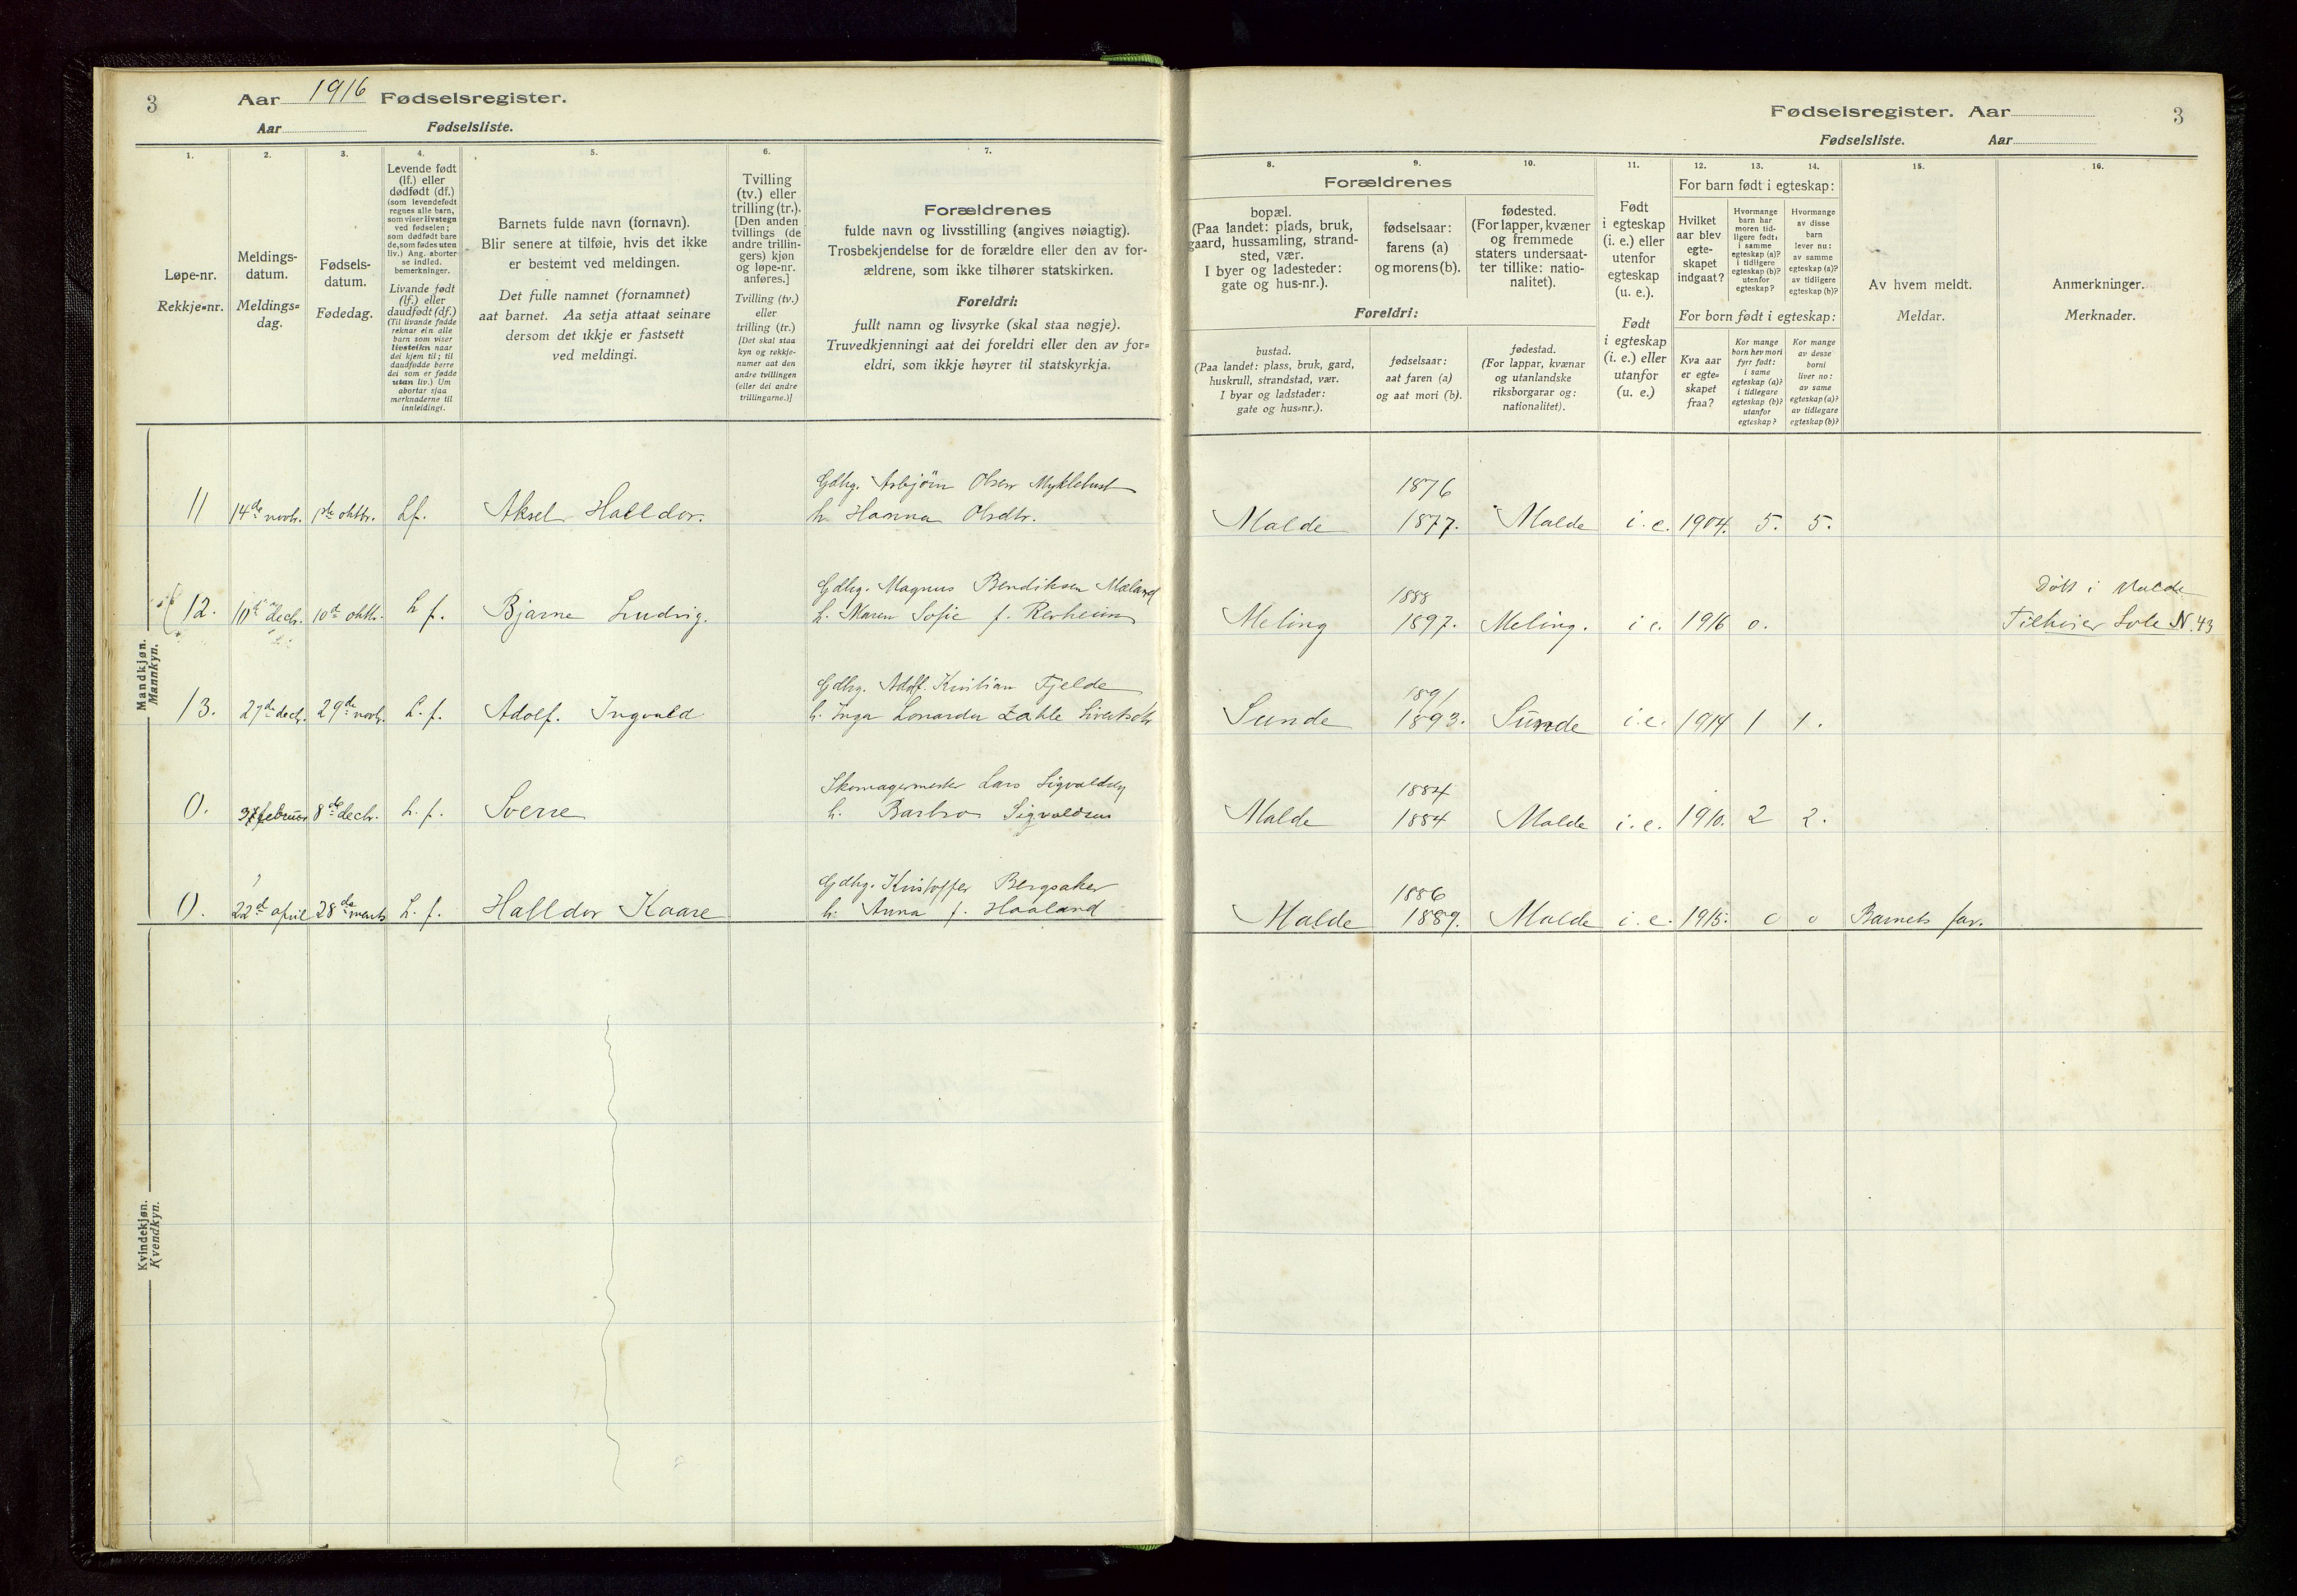 3 Aar 1916 Fødselsregister.
Aar Fødselsliste.
Fødselsregister. Aar 3
Fødselsliste. Aar
1.
Løpe-nr.
Rekkje=nr.
2.
Meldings-
datum.
Meldings=
dag.
3.
Fødsels-
datum.
Fødedag.
4.
Levende født
(lf.) eller
dødfødt (df.)
(som levendefødt
regnes alle barn,
som viser livstegn
ved fødselen;
som dødfødt bare
de, som fødes uten
liv.) Ang. aborter
se indled.
bemerkninger.
Livande født
(lf.) eller
daudfødt (df.)
(Til livande fødde
reknar ein alle
barn som viser
livsteikn naar
dei kjem til; til
daudfødde berre
dei som er fødde
utan liv.) Um
abortar sjaa
merknaderne til
innleidingi.
5.
Barnets fulde navn (fornavn).
Blir senere at tilføie, hvis det ikke
er bestemt ved meldingen.
Det fulle namnet (fornamnet)
aat barnet. Aa setja attaat seinare
dersom det ikkje er fastsett
ved meldingi.
6.
Tvilling
(tv.) eller
trilling (tr.).
[Den anden
tvillings (de
andre trillin-
gers) kjøn
og løpe-nr.
anføres.]
Tvilling (tv.)
eller
trilling (tr.)
[Det skal staa
kyn og rekkje-
numer aat den
andre tvillingen
(eller dei andre
trillingarne.)]
7.
Forældrenes
fulde navn og livsstilling (angives nøiagtig).
Trosbekjendelse for de forældre eller den av for-
ældrene, som ikke tilhører statskirken.
Foreldri:
fullt namn og livsyrke (skal staa nøgje).
Truvedkjenningi aat dei foreldri eller den av for=
eldri, som ikkje høyrer til statskyrkja.
Forældrenes
8.
bopæl.
(Paa landet: plads, bruk,
gaard, hussamling, strand-
sted, vær.
I byer og ladesteder:
gate og hus-nr.).
9.
fødselsaar:
farens (a)
og morens (b).
10.
fødested.
(For lapper, kvæner
og fremmede
staters undersaat-
ter tillike: natio-
nalitet).
Foreldri:
bustad.
(Paa landet: plass, bruk, gard,
huskrull, strandstad, vær.
I byar og ladstader:
gate og hus=nr.).
fødselsaar:
aat faren (a)
og aat mori (b).
fødestad.
(For lappar, kvænar
og utanlandske
riksborgarar og:
nationalitet).
11.
Født
i egteskap
(i. e.) eller
utenfor
egteskap
(u. e.).
Født
i egteskap
(i. e.) eller
utanfor
(u. e.)
12. 13. 14.
For barn født i egteskap:
Hvilket
aar blev
egte-
skapet
indgaat?
Hvormange
barn har
moren tid-
ligere født:
i samme
egteskap (a)?
i tidligere
egteskap (b)?
utenfor
egteskap?
Hvormange
av disse
barn
lever nu:
av samme
egteskap (a)?
av tidligere
egteskap (b)?
For born født i egteskap:
Kva aar
er egte=
skapet
fraa?
Kor mange
born hev mori
fyrr født:
i same
egteskap (a)?
i tidlegare
egteskap (b)?
utanfor
egteskap?
Kor mange
av desse
borni
liver no:
av same
egteskap (a)?
av tidlegare
egteskap (b)?
15.
Av hvem meldt.
Meldar.
16.
Anmerkninger.
Merknader.
Mandkjøn.
Mannkyn.
Gdbg. Asbjörn Olsen Myklebust 1876
11 14de novbr. 1ste oktbr. Lf. Aksel Halldor. h. Hanna Olsdtr. Malde 1877. Malde i. e. 1904. 5. 5.
Gdbg. Magnus Bendiksen Mæland 1888 Döbt i Malde
12. 10de decbr. 10de oktbr. L. f. Bjarne Ludvig. h. Maren Sofie f. Revheim Meling 1897. Meling. i e. 1916 0. Tilhører Sole N. 43
Gdbg. Adolf Kristian Fjelde 1891
13. 27de decbr. 29de novbr. L. f. Adolf. Ingvald h. Inga Lonarda Zahle Sivertsdtr Sunde 1893. Sunde i. e. 1914 1 1.
Skomagermester Lars Sigvaldsen 1884
0. februar 8de decbr. L. f. Sverre h. Barbro Sigvaldsen Malde 1884 Malde i. e. 1910. 2 2.
Gdbg. Kristoffer Bergsaker 1886
0. 22d april 28de marts L. f. Halldor Kaare h. Anna f. Haaland Malde 1889. Malde i. e. 1915. 0 0 Barnets far.
Kvindekjøn.
Kvendkyn.